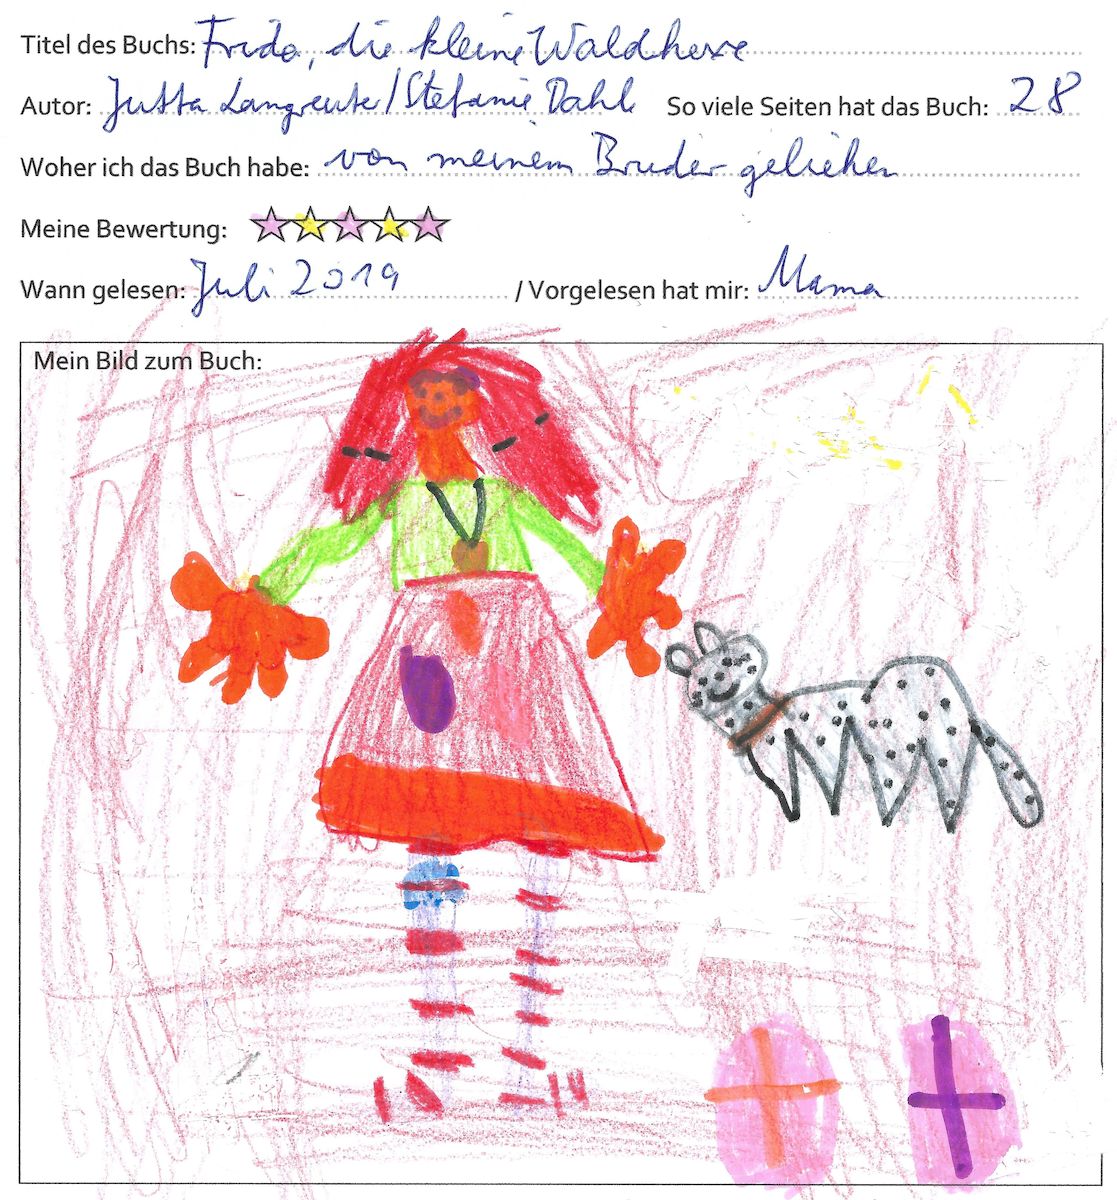 Titel des Buchs: Frida, die kleine Waldhexe
Autor: Jutta Langreuter/Stefanie Dahle So viele Seiten hat das Buch: 28
Woher ich das Buch habe: von meinem Bruder geliehen
Meine Bewertung:
Wann gelesen: Juli 2019 / Vorgelesen hat mir: Mama
Mein Bild zum Buch: